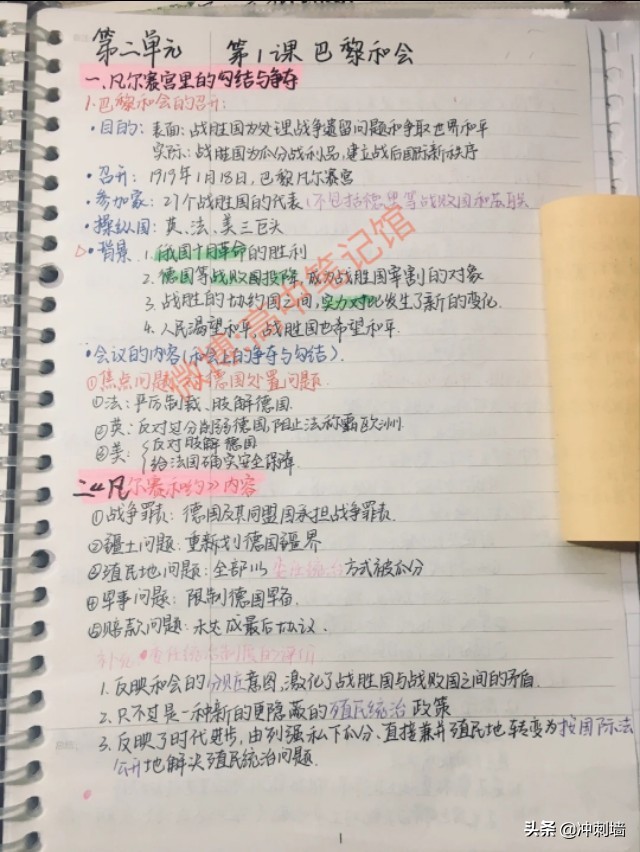 第二单元 第1课 巴黎和会
一、凡尔赛宫里的勾结与争夺
1.巴黎和会的召开:
·目的: 表面:战胜国为处理战争遗留问题和争取世界和平
实际:战胜国为瓜分战利品,建立战后国际新秩序
·召开: 1919年1月18日,巴黎凡尔赛宫
·参加家: 27个战胜国的代表(不包括德奥等战败国和苏联
·操纵国: 英、法、美三巨头
·背景 1.俄国十月革命的胜利
2.德国等战败国投降,成为战胜国宰割的对象
3.战胜的协约国之间,实力对比发生了新的变化.
4.人民渴望和平,战胜国也希望和平.
·会议的内容(和会上的争夺与勾结).
①焦点问题: 德国处置问题
①法:严厉制裁、肢解德国.
②英:反对过分削弱德国,阻止法称霸欧洲.
③美: 反对肢解德国
给法国确实安全保障.
二、《凡尔赛和约》内容
①战争罪责: 德国及其同盟国承担战争罪责.
②疆土问题:重新划德国疆界
③殖民地问题:全部以委任统治方式被瓜分
④军事问题: 限制德国军备.
⑤赔款问题:未达成最后协议.
补充·委任统治制度的评价
1.反映和会的分赃意图,激化了战胜国与战败国之间的矛盾.
2.只不过是一种新的更隐蔽的殖民统治政策
3.反映了时代进步,由列强私下瓜分、直接兼并殖民地转变为按国际法
公开地解决殖民统治问题.
1
微博:高中笔记馆
头条 @冲刺墙